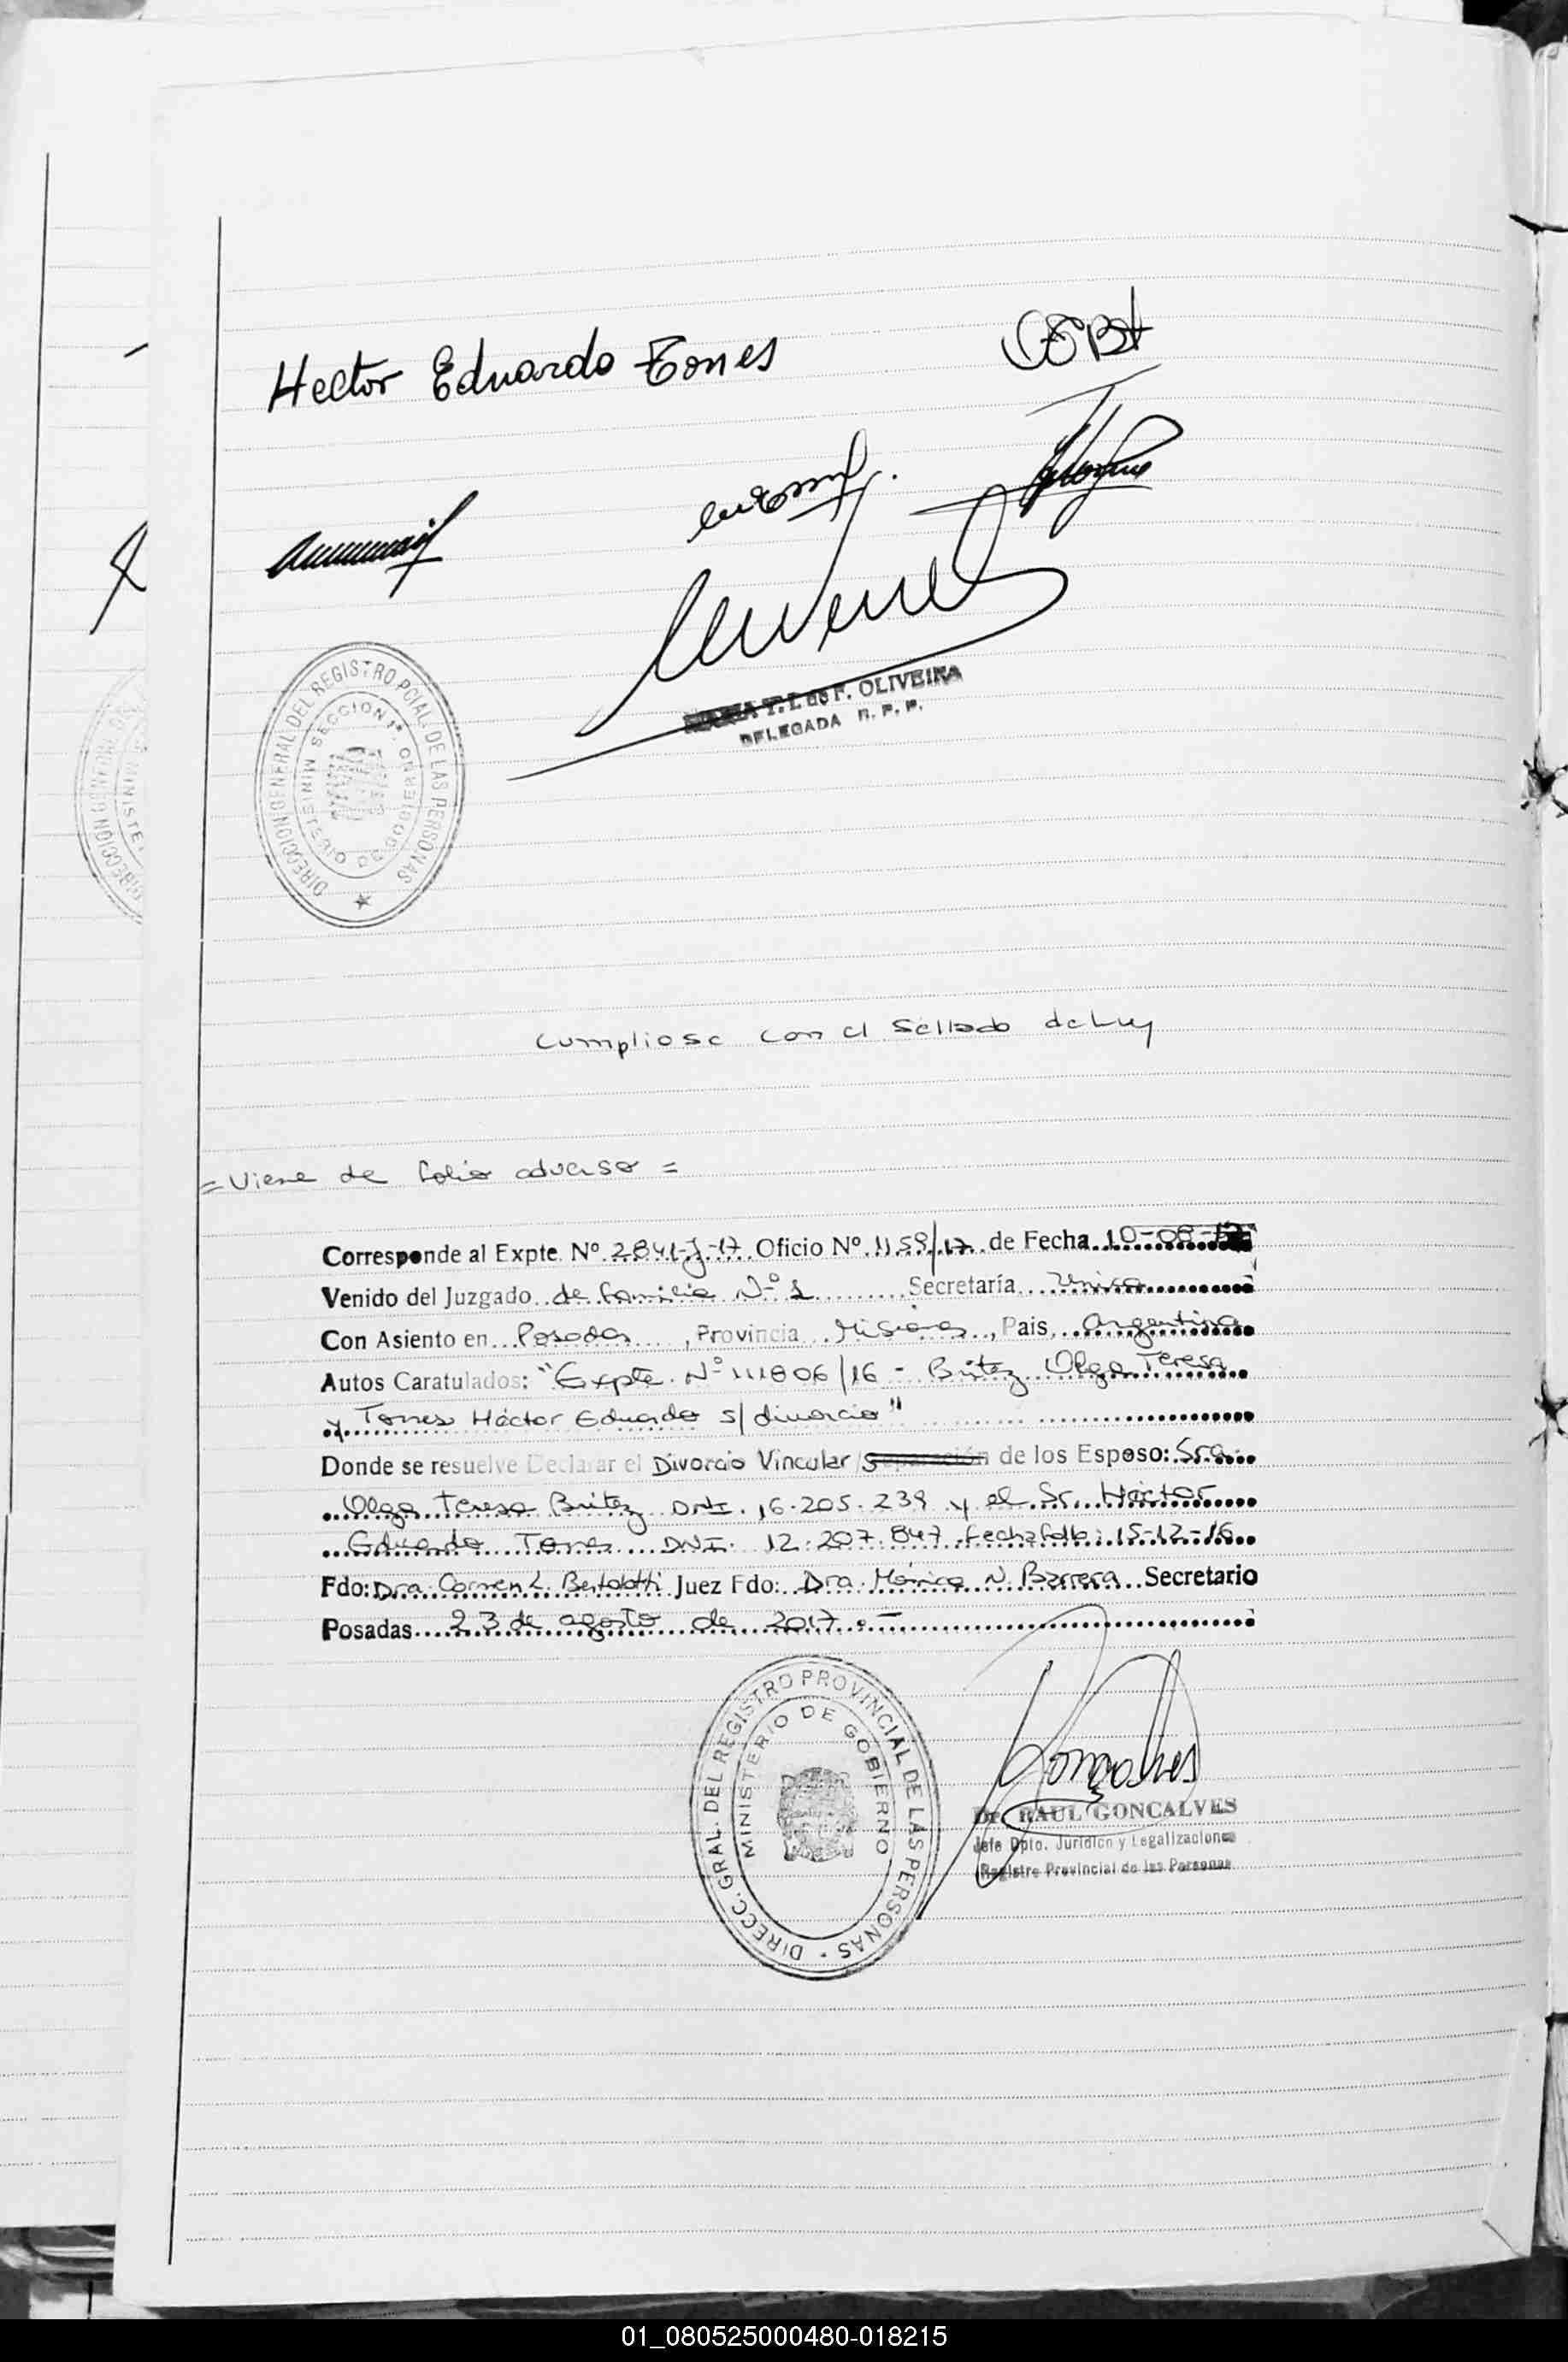 Hector Eduardo Torres
MARIA T. I. de F. OLIVEIRA
DELEGADA R. P. P.
DIRECCION GENERAL DEL REGISTRO PCIAL. DE LAS PERSONAS
SECCION 1ª MINISTERIO DE GOBIERNO
Cumpliose con el Sellado de Ley
= Viene de folio adverso =
Corresponde al Expte. Nº 2841-J-17 Oficio Nº 1159/17 de Fecha 10-08-17
Venido del Juzgado de familia Nº 1 Secretaría Unica
Con Asiento en Posadas, Provincia Misiones, Pais, Argentina
Autos Caratulados: "Expte. Nº 111806/16 - Britez Olga Teresa
y Torres Héctor Eduardo s/ divorcio"
Donde se resuelve Declarar el Divorcio Vincular /Separación de los Esposo: Sra.
Olga Teresa Britez DNI. 16.205.239 y el Sr. Héctor
Eduardo Torres DNI. 12.207.847 fecha fallo: 15-12-16
Fdo: Dra. Carmen L. Bertolotti Juez Fdo: Dra. Mónica N. Barrera Secretario
Posadas 23 de agosto de 2017.-
DIRECC. GRAL. DEL REGISTRO PROVINCIAL DE LAS PERSONAS
MINISTERIO DE GOBIERNO
Goncalves
Dr. RAUL GONCALVES
Jefe Dpto. Jurídico y Legalizaciones
Registro Provincial de las Personas
01_080525000480-018215